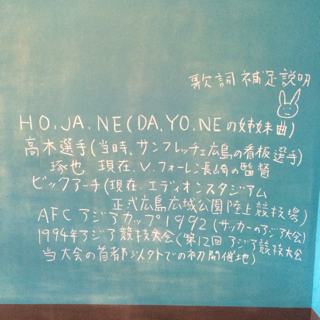 歌詞補足説明
HO.JA.NE(DA.YO.NEの姉妹曲)
高木選手(当時、サンフレッチェ広島の看板選手)
琢也 現在、V.フォーレン長崎の監督
ビックアーチ(現在.エディオンスタジアム
正式広島広域公園陸上競技場)
AFCアジアカップ1992(サッカーのアジア大会)
1994年アジア競技大会(第12回アジア競技大会
当大会の首都以外での初開催地)